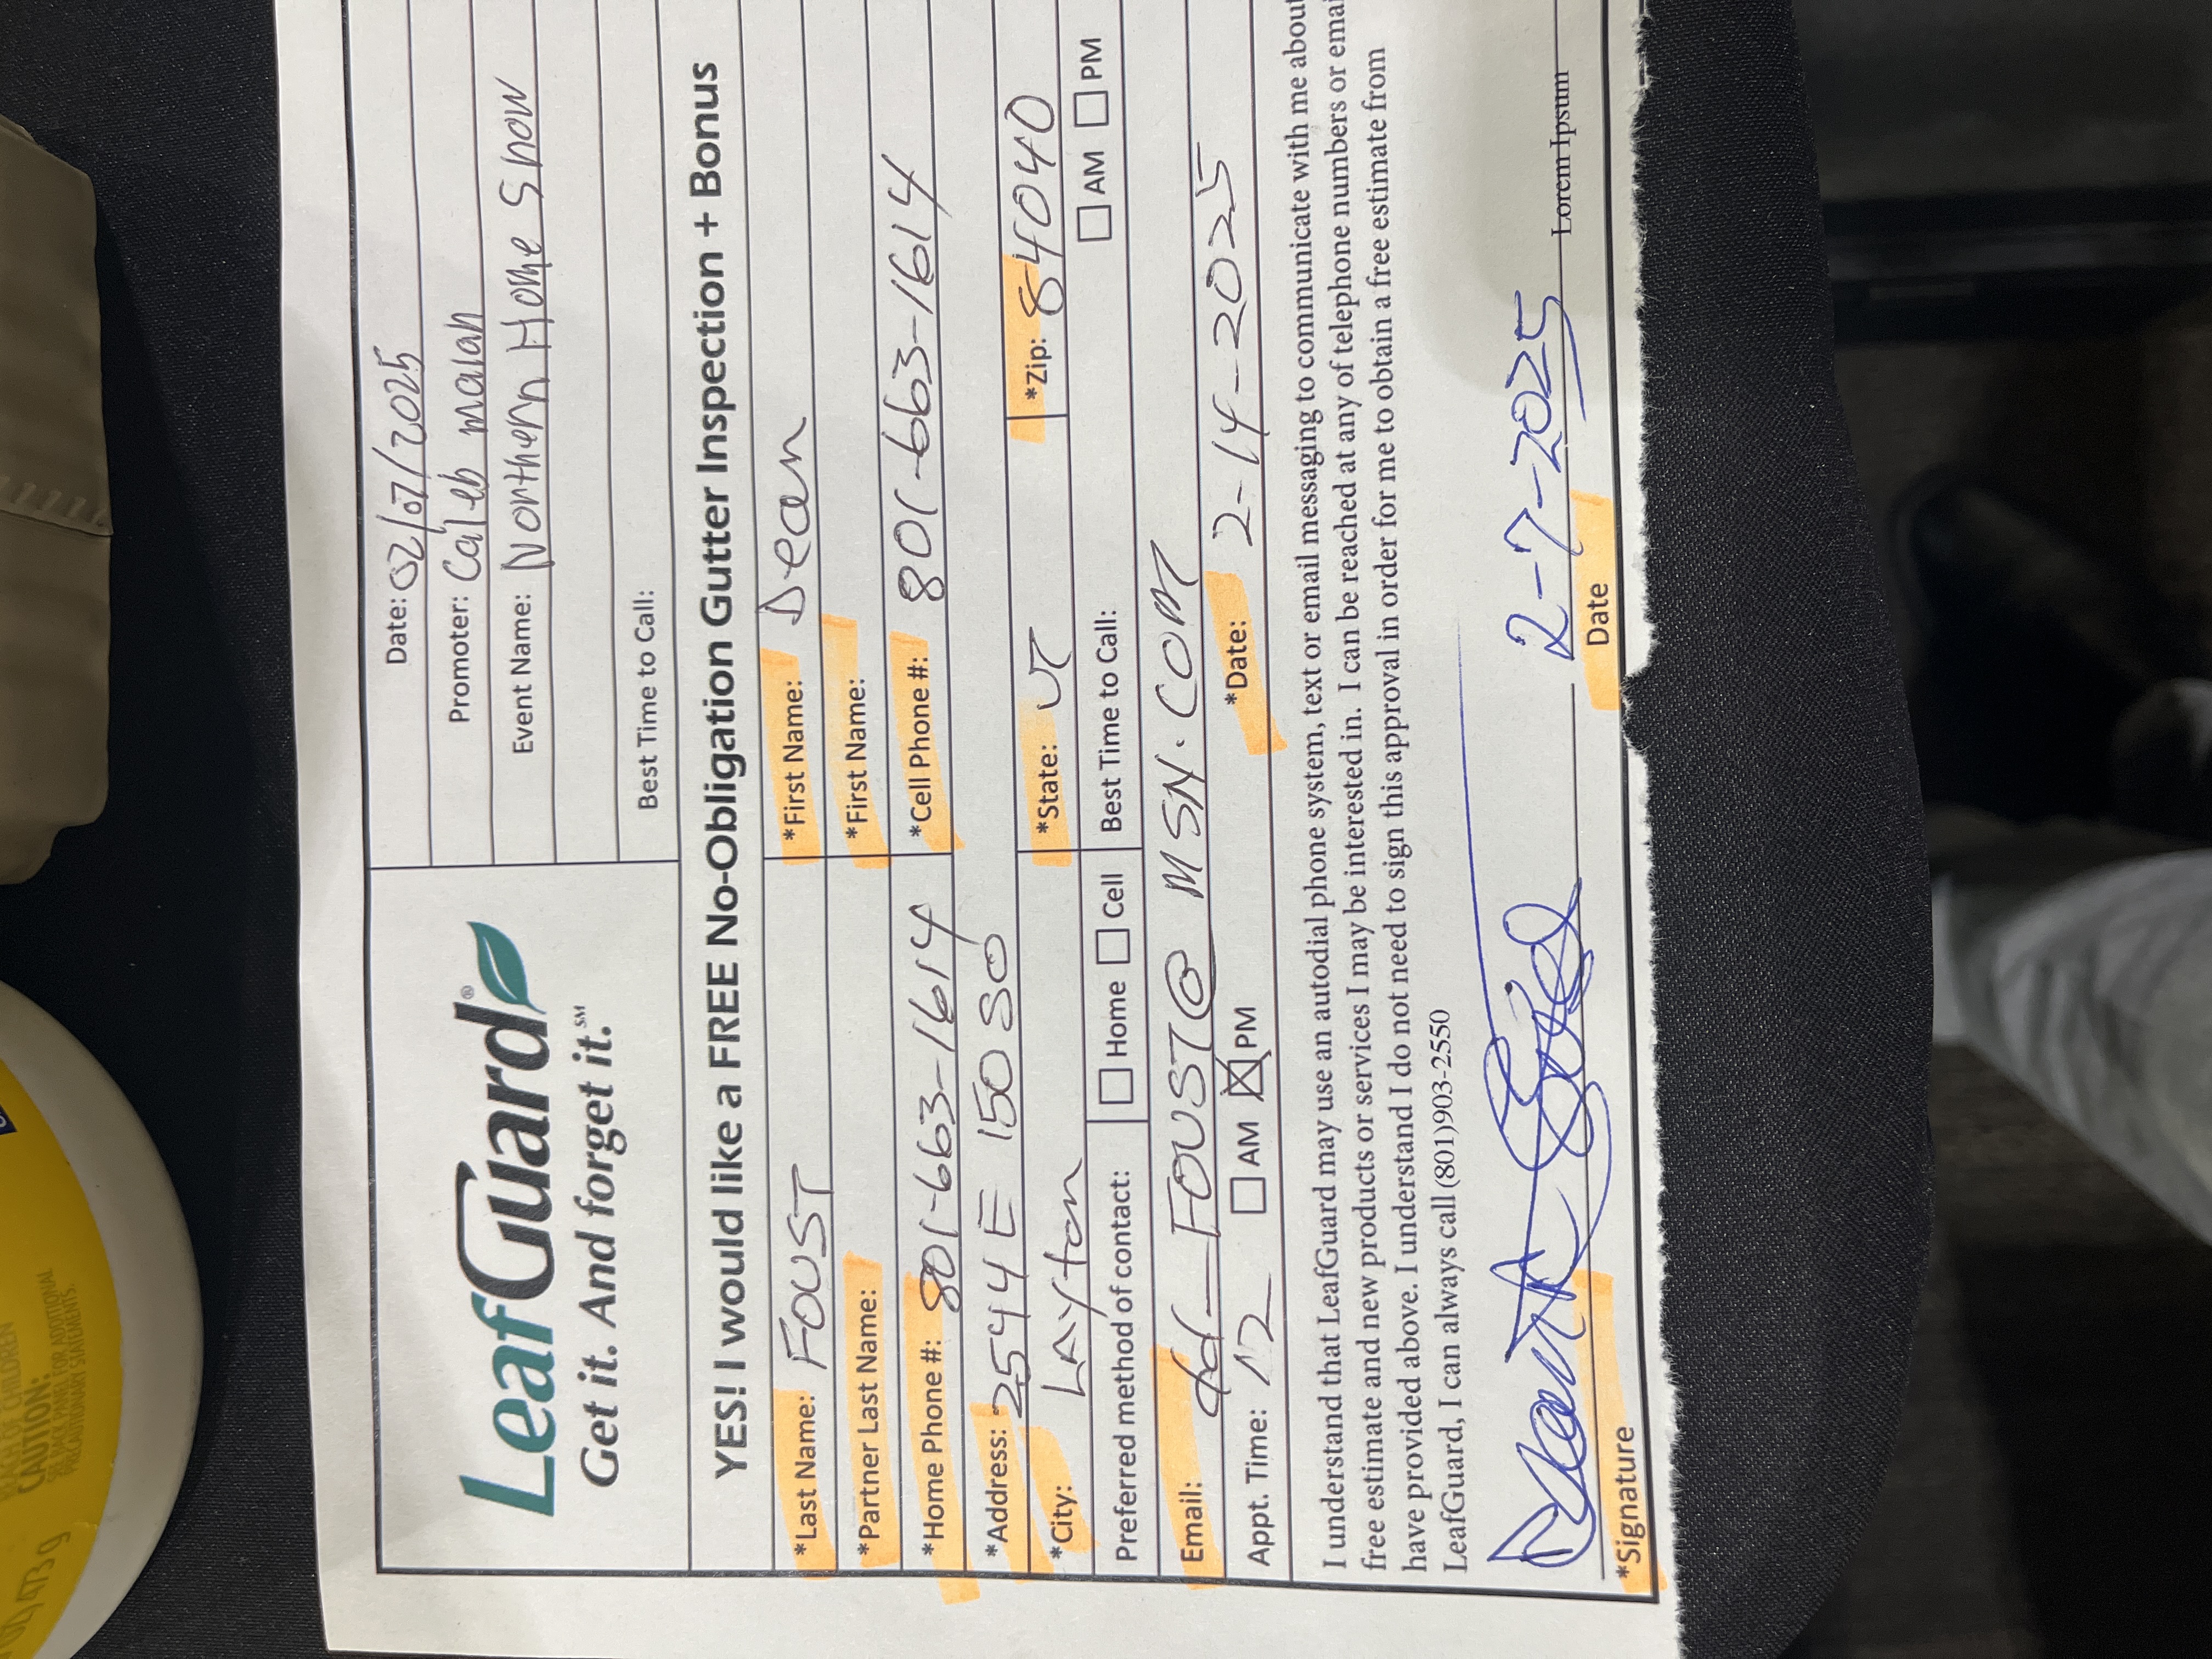 473 g
REACH OF CHILDREN
CAUTION:
SEE BACK PANEL FOR ADDITIONAL
PRECAUTIONARY STATEMENTS.
LeafGuard®
Get it. And forget it.℠
Date: 02/07/2025
Promoter: Caleb malah
Event Name: Northern Home Show
Best Time to Call:
YES! I would like a FREE No-Obligation Gutter Inspection + Bonus
*Last Name: FOUST *First Name: Dean
*Partner Last Name: *First Name:
*Home Phone #: 801-663-1614 *Cell Phone #: 801-663-1614
*Address: 2544 E 150 SO
*City: LAyton *State: UT *Zip: 84040
Preferred method of contact: Home Cell Best Time to Call: AM PM
Email: dd_FOUST@MSN.COM
Appt. Time: 12 AM PM *Date: 2-14-2025
I understand that LeafGuard may use an autodial phone system, text or email messaging to communicate with me about
free estimate and new products or services I may be interested in. I can be reached at any of telephone numbers or emai
have provided above. I understand I do not need to sign this approval in order for me to obtain a free estimate from
LeafGuard, I can always call (801)903-2550
2-7-2025 Lorem Ipsum
*Signature Date